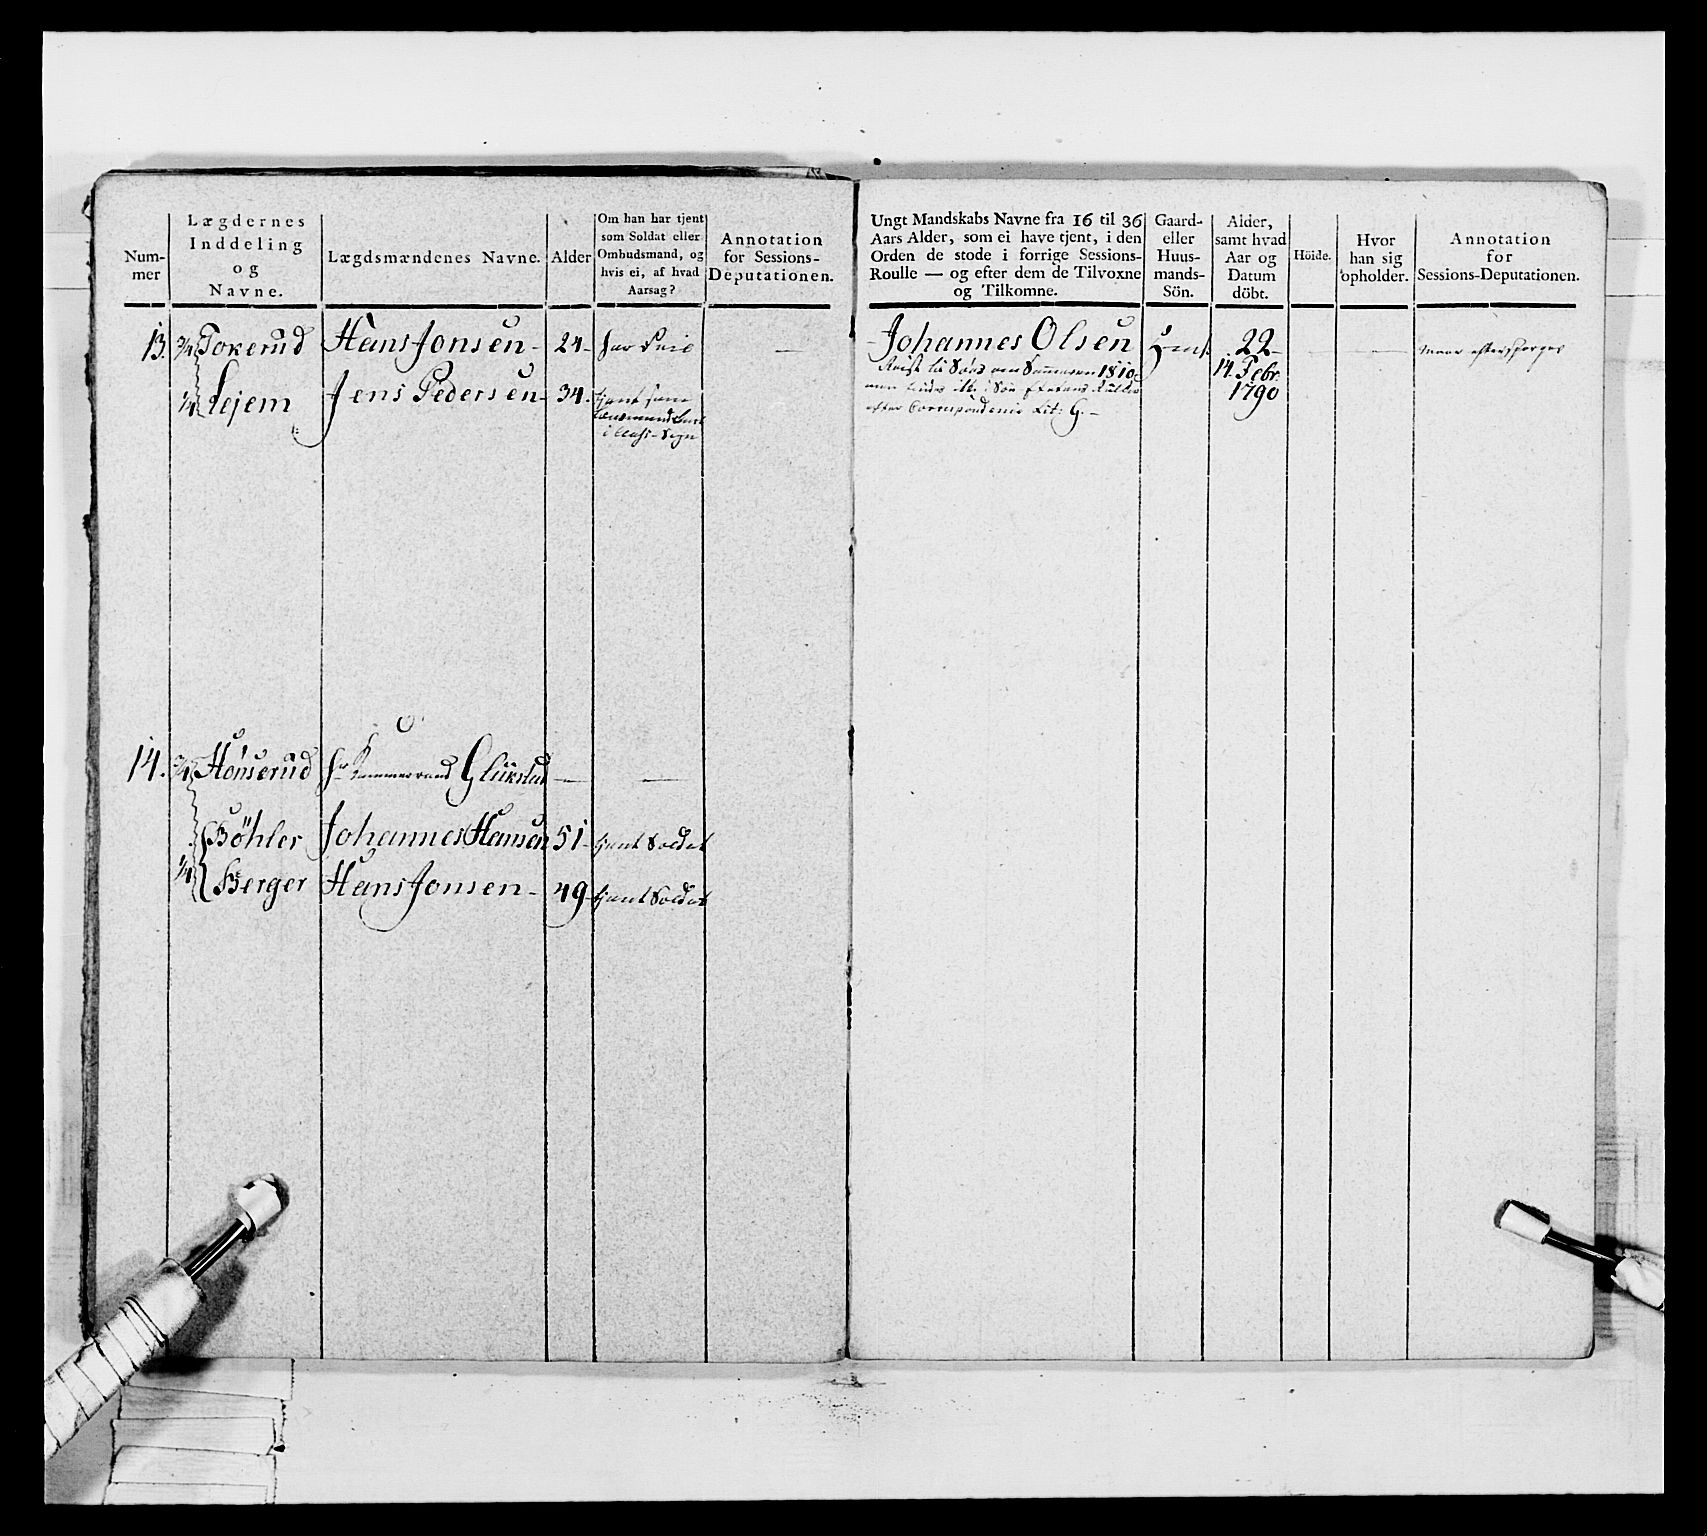 Num-
mer
Lægdernes
Inddeling
og
Navne.
Lægdsmændenes Navne.
Alder
Om han har tjent
som Soldat eller
Ombudsmand, og
hvis ei, af hvad
Aarsag?
Annotation
for Sessions-
Deputationen.
13. 3/4 Tokerud Hans Jonsen - 24 -
1/4 Lejem Jens Pedersen - 34 - tjent som
14. 3/4 Hønserud Hr Kammerraad Glükstad — —
Böhler Johannes Hansen 51 - tjent Soldat
1/4 Berger Hans Jonsen - 49 - tjent Soldat
Ungt Mandskabs Navne fra 16 til 36
Aars Alder, som ei have tjent, i den
Orden de stode i forrige Sessions-
Roulle — og efter dem de Tilvoxne
og Tilkomne.
Gaard-
eller
Huus-
mands-
Sön.
Alder,
samt hvad
Aar og
Datum
döbt.
Höide.
Hvor
han sig
opholder.
Annotation
for
Sessions-Deputationen.
Johannes Olsen 22 - — — efterspørges
Reist til Søes om Sommeren 1810
14 Febr.
1790
efter Correspondence Lit: G. -